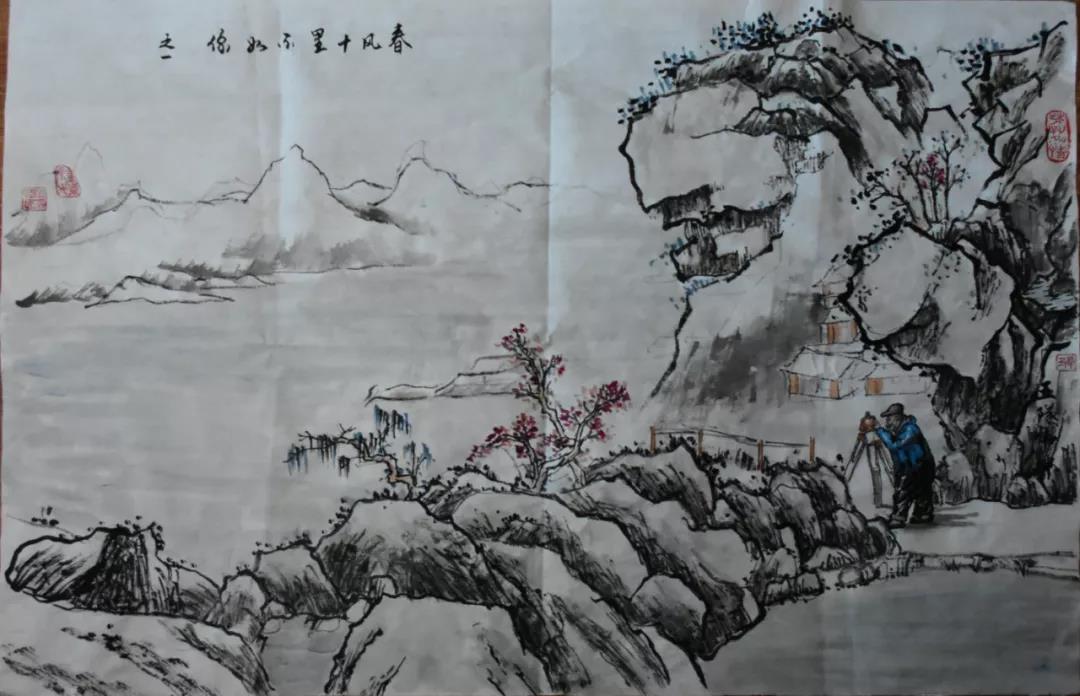 春风十里不如你 之一